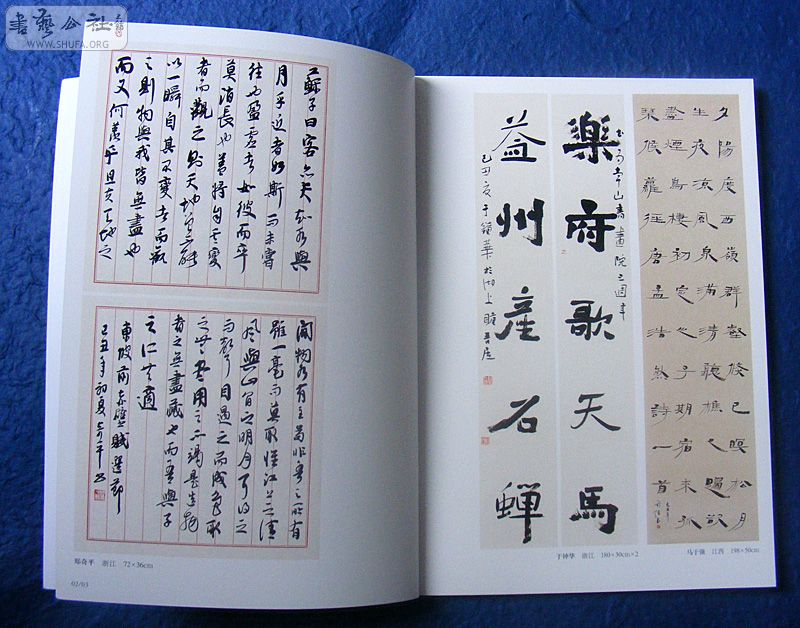 書藝公社
WWW.SHUFA.ORG
蘇子曰客亦知夫水與
月乎逝者如斯而未嘗
往也盈虛者如彼而卒
莫消長也蓋將自其變
者而觀之則天地曾不能
以一瞬自其不變者而觀
之則物與我皆無盡也
而又何羨乎且夫天地之
間物各有主苟非吾之所有
雖一毫而莫取惟江上之清
風與山間之明月耳得之
而為聲目遇之而成色取
之無盡用之不竭是造物
者之無盡藏也而吾與子
之所共適
東坡前赤壁賦選節
己丑年初夏奇平書
郑奇平 浙江 72×36cm
02/03
夕陽度西嶺群壑倏已暝松月
生夜涼風泉滿清聽樵人歸欲
盡煙鳥棲初定之子期宿來孤
琴候蘿徑唐孟浩然詩一首
樂府歌天馬
益州產石蟬
己丑夏于鍾華於湖上
于钟华 浙江 180×30cm×2
马于强 江西 198×50cm